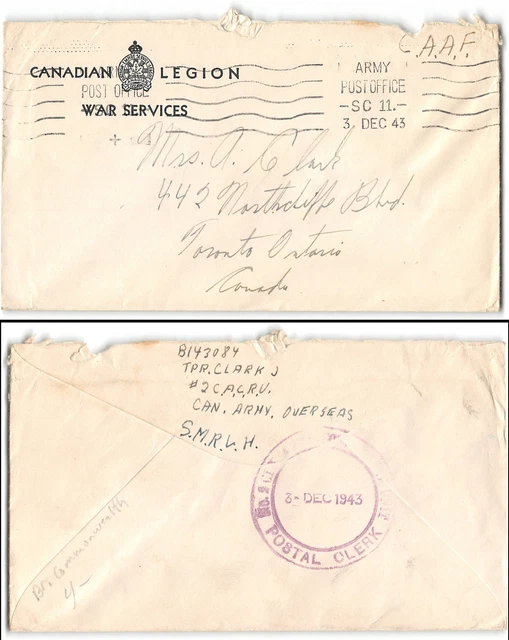 C.A.A.F.
CANADIAN LEGION
POST OFFICE
WAR SERVICES
ARMY
POST OFFICE
–SC 11.–
3. DEC 43
Mrs. A. Clark
442 Northcliffe Blvd.
Toronto Ontario
Canada.
B143084
TPR. CLARK J
#2 C.A.C.R.U.
CAN. ARMY. OVERSEAS
S.M.R. H.
No. 2
3- DEC 1943
POSTAL CLERK
Br. Commonwealth